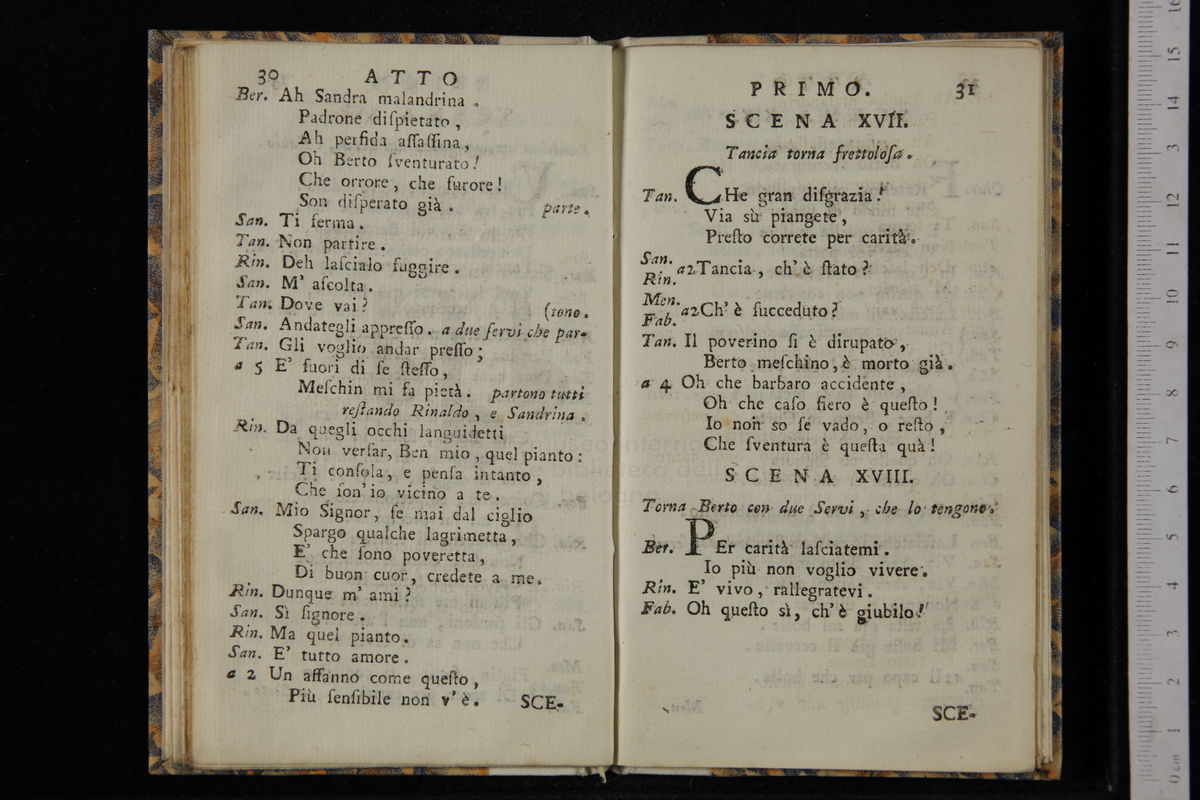 30 ATTO
Ber. Ah Sandra malandrina.
Padrone diſpietato,
Ah perfida aſſaſſina,
Oh Berto ſventurato!
Che orrore, che furore!
Son diſperato già. parte.
San. Ti ferma.
Tan. Non partire.
Rin. Deh laſcialo fuggire.
San. M' aſcolta.
Tan. Dove vai? (tono.
San. Andategli appreſſo. a due ſervi che par-
Tan. Gli voglio andar preſſo;
a 5 E' fuori di ſe ſteſſo,
Meſchin mi fa pietà. partono tutti
reſtando Rinaldo, e Sandrina.
Rin. Da quegli occhi languidetti
Non verſar, Ben mio, quel pianto:
Ti conſola, e penſa intanto,
Che ſon' io vicino a te.
San. Mio Signor, ſe mai dal ciglio
Spargo qualche lagrimetta,
E' che ſono poveretta,
Di buon cuor, credete a me.
Rin. Dunque m' ami?
San. Sì ſignore.
Rin. Ma quel pianto.
San. E' tutto amore.
a 2 Un affanno come queſto,
Più ſenſibile non v' è. SCE-
PRIMO. 31
SCENA XVII.
Tancia torna frettoloſa.
Tan. CHe gran diſgrazia!
Via sù piangete,
Preſto correte per carità.
San.
Rin. a2 Tancia, ch' è ſtato?
Men.
Fab. a2 Ch' è ſucceduto?
Tan. Il poverino ſi è dirupato,
Berto meſchino, è morto già.
a 4 Oh che barbaro accidente,
Oh che caſo fiero è queſto!
Io non so ſe vado, o reſto,
Che ſventura è queſta quà!
SCENA XVIII.
Torna Berto con due Servi, che lo tengono.
Ber. PEr carità laſciatemi.
Io più non voglio vivere.
Rin. E' vivo, rallegratevi.
Fab. Oh queſto sì, ch' è giubilo!
SCE-